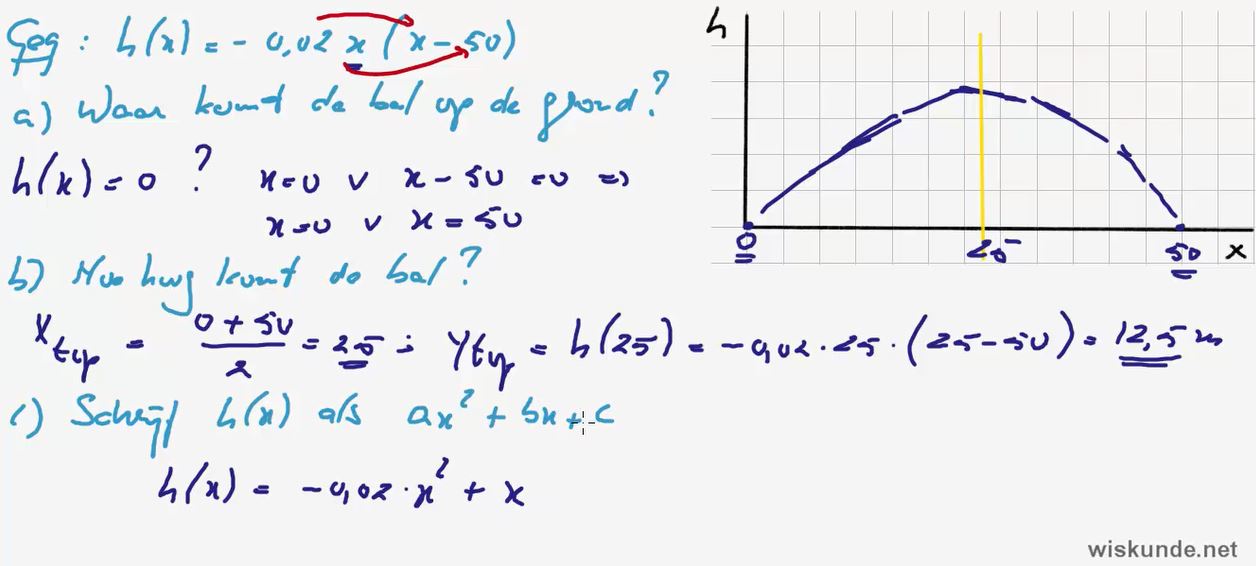 Geg : h(x) = - 0,02 x (x - 50)
a) Waar komt de bal op de grond?
h(x) = 0 ? x=0 v x - 50 = 0 =>
x=0 v x = 50
b) Hoe hoog komt de bal?
x top = (0 + 50)/2 = 25 ; y top = h(25) = -0,02 · 25 · (25 - 50) = 12,5 m
c) Schrijf h(x) als ax² + bx + c
h(x) = -0,02 · x² + x
h
0 25 50 x
wiskunde.net